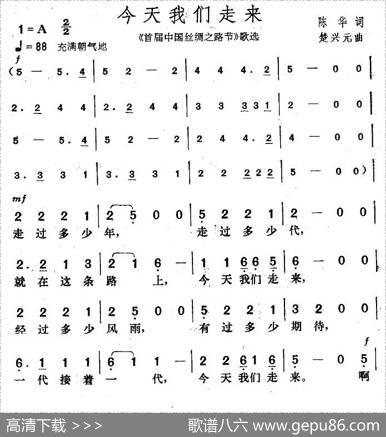 今天我们走来
1=A 2/2
《首届中国丝绸之路节》歌选
陈 华 词
楚兴元 曲
♩=88 充满朝气地
f
(5 - 5. 4 | 5 - 0 0 | 4 4 4. 2 | 5 - 0 0 |
2. 2 4 | 2. 2 4 | 3 3 3 3 1 | 2 2 0 0 |
5 - 5. 4 | 5 - 0 0 | 4 4 4. 2 | 5 - 0 0 |
3. 3 3 1 | 3. 3 3 1 | 2 2 2 2 | 2 - 0 0) |
mf
2 2 2 1 | 2 5 0 0 | 5 2 2 1 | 2 - 0 0 |
走过多少年, 走过多少代,
2. 2 1 3 | 2 1 6 - | 1 1 6 6 5 | 6 - 0 0 |
就在这条路上, 今天我们走来,
2 2 2 1 | 2 5 0 0 | 5 2 2 1 | 3 2 0 0 |
经过多少风雨, 有过多少期待,
f
6. 1 6 3 | 2 1 2 - | 2 2 6 1 6 | 5 - 0 5 |
一代接着一代, 今天我们走来。 啊
高清下载 >>> 歌谱八六 www.gepu86.com